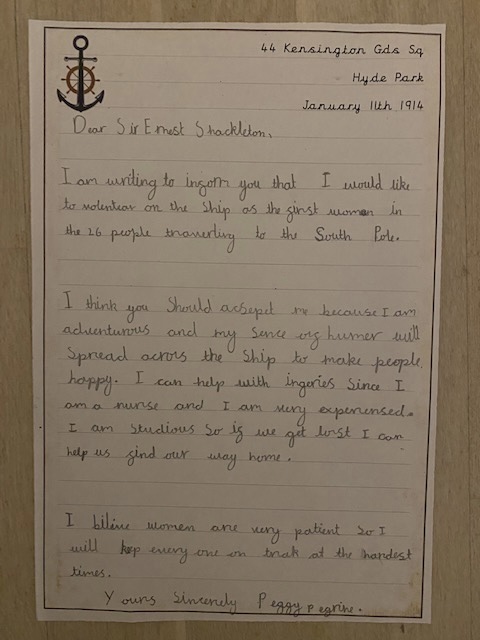 44 Kensington Gds Sq
Hyde Park
January 11th 1914
Dear Sir Ernest Shackleton,
I am writing to inform you that I would like
to volentear on the Ship as the first women in
the 26 people traverling to the South Pole.
I think you Should acsepet me because I am
adventurous and my Sence of humer will
Spread across the Ship to make people
happy. I can help with ingeries Since I
am a nurse and I am very experiensed.
I am Studious So if we get lost I can
help us find our way home.
I bilive women are very patient So I
will kep every one on trak at the hardest
times.
Yours Sincerely Peggy pegrine.